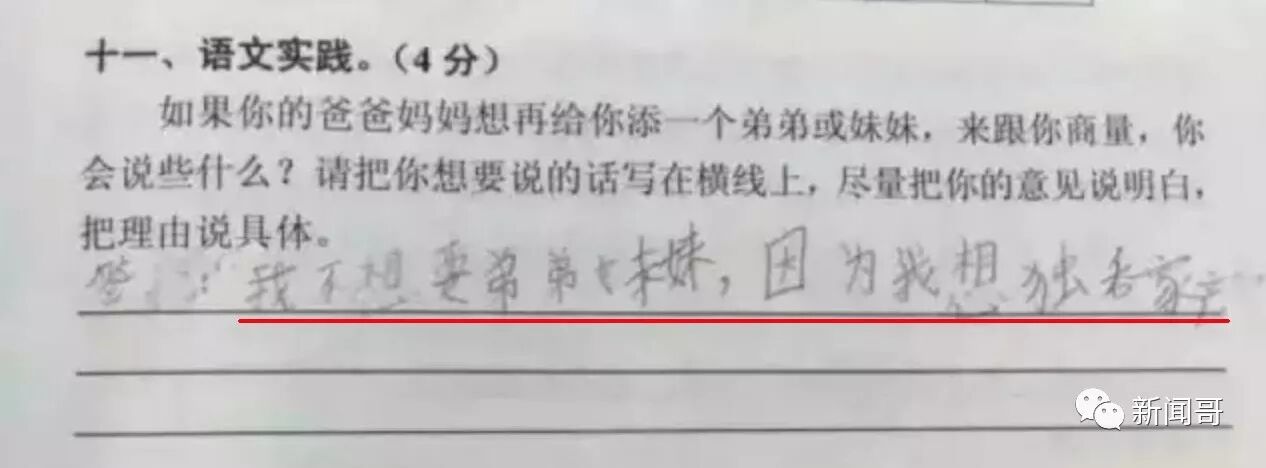 十一、语文实践。（4分）
如果你的爸爸妈妈想再给你添一个弟弟或妹妹，来跟你商量，你
会说些什么？请把你想要说的话写在横线上，尽量把你的意见说明白，
把理由说具体。
答：我不想要弟弟妹妹，因为我想独吞家产
新闻哥